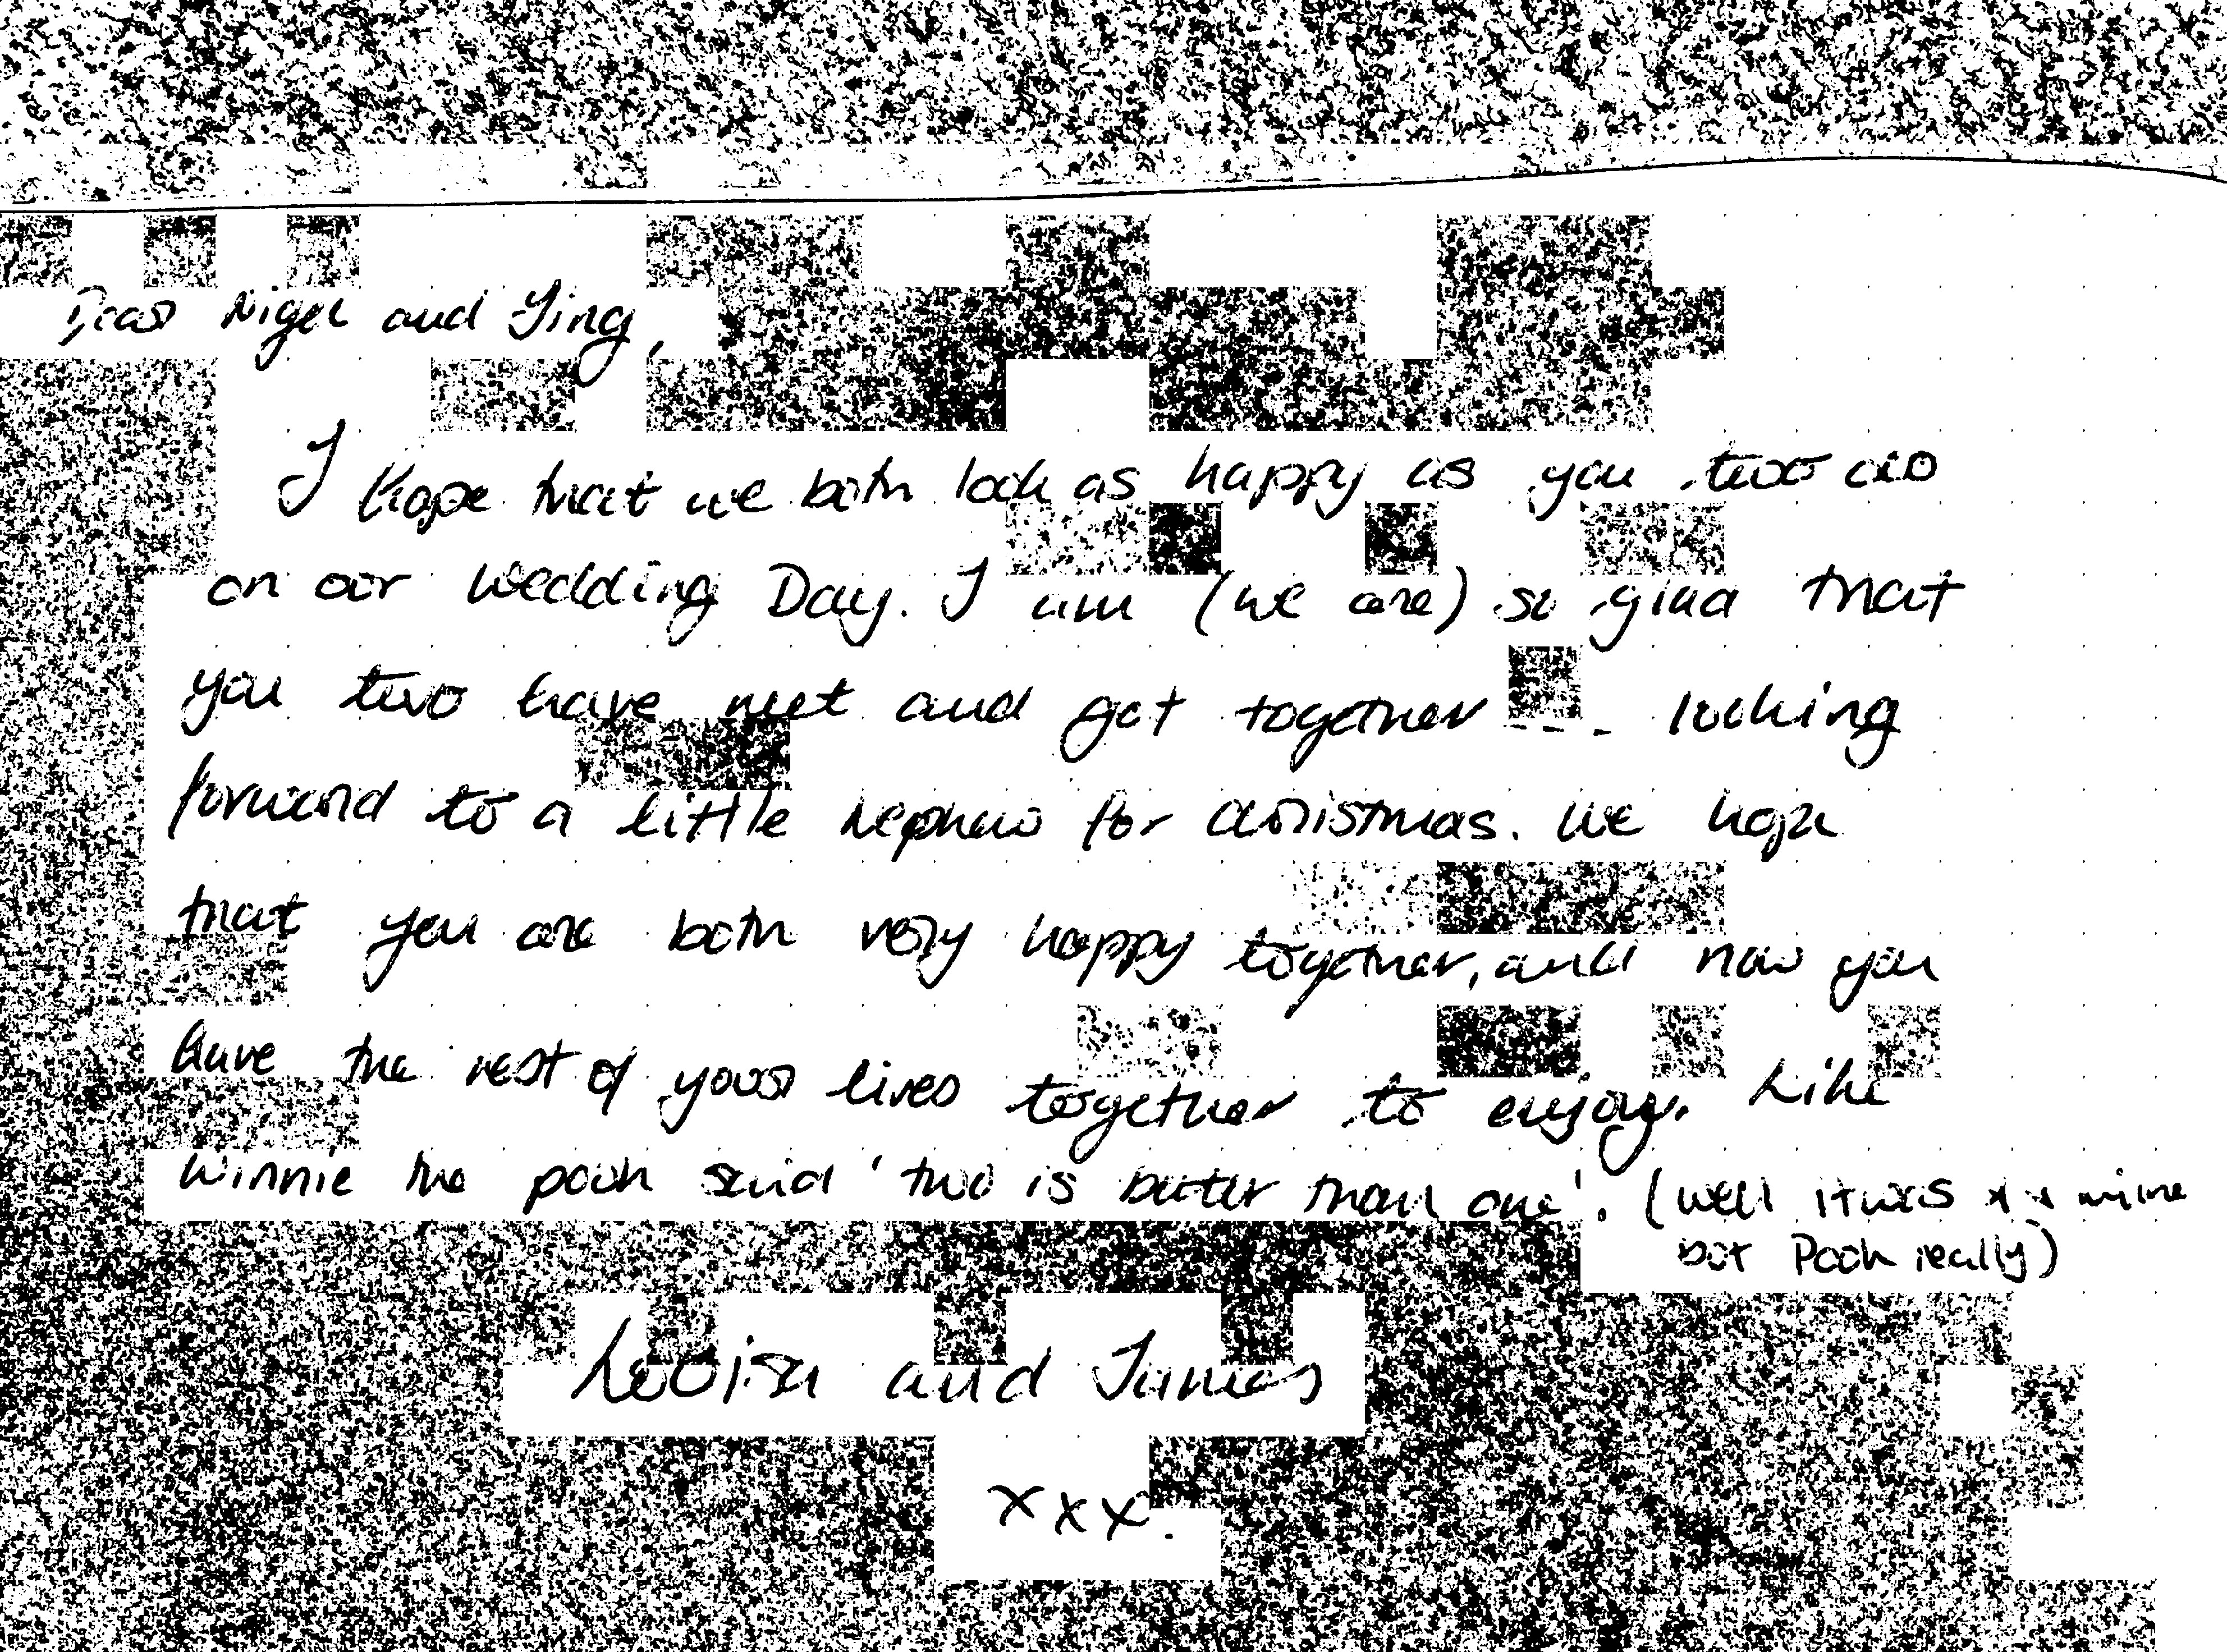 Dear Nigel and Ying,
I hope that we both look as happy as you two do
on our Wedding Day. I am (we are) so glad that
you two have met and got together --- looking
forward to a little nephew for Christmas. We hope
that you are both very happy together, and now you
have the rest of your lives together to enjoy. Like
Winnie the pooh said 'two is better than one'. (well it was
but Pooh really)
Louisa and James
xxx.